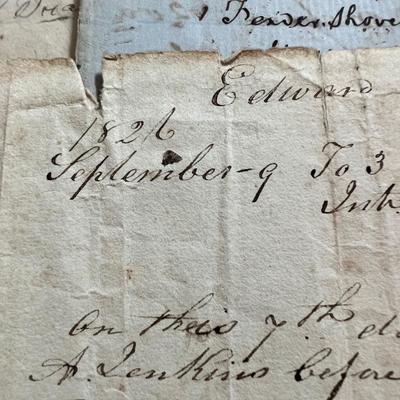 Fender. Shove
Edward
1826
September-9 To 3
Int
On this 7.th d
A. Jenkins before